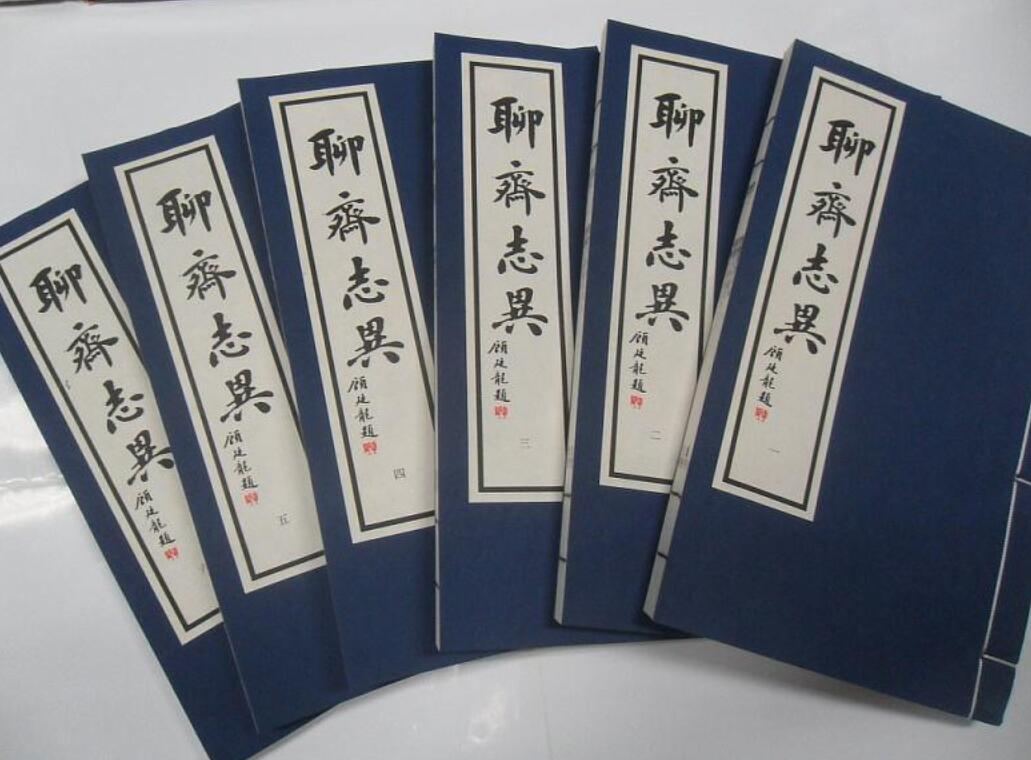 聊齋志異
顾廷龍題
一
聊齋志異
顾廷龍題
二
聊齋志異
顾廷龍題
三
聊齋志異
顾廷龍題
四
聊齋志異
顾廷龍題
五
聊齋志異
顾廷龍題